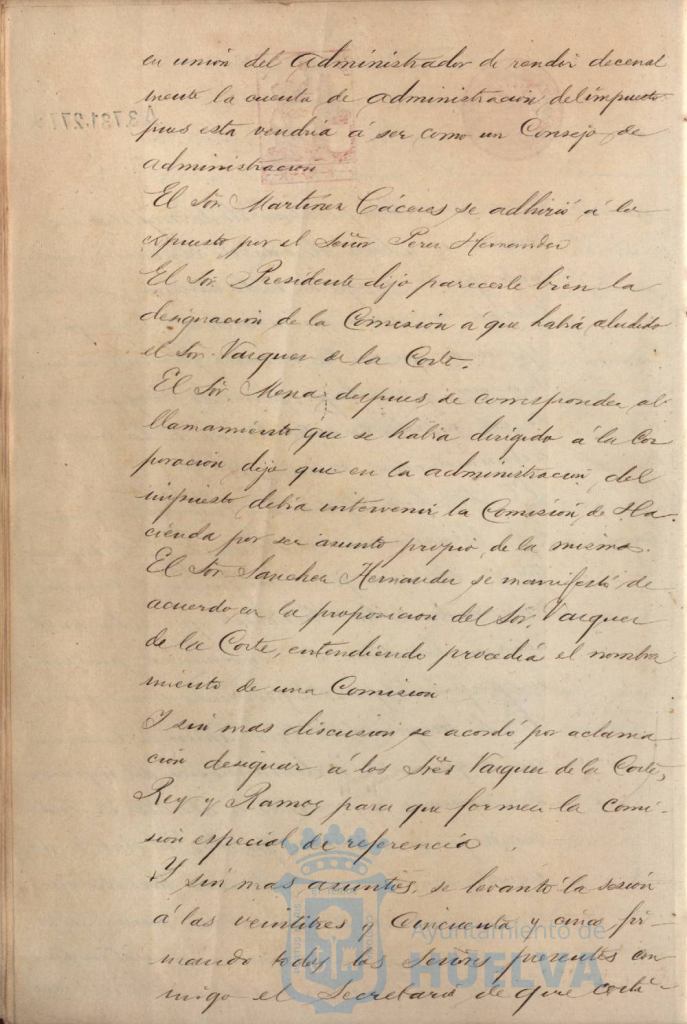 en unión del Administrador de rendir decenal
mente la cuenta de administración del impuesto
pues esta vendria á ser como un Consejo de
administración
El Sor. Martinez Cáceres se adhirió á lo
expuesto por el Señor Perez Hernandez
El Sor. Presidente dijo parecerle bien la
designación de la Comisión á que habia aludido
el Sor. Vazquez de la Corte.
El Sor. Mena despues de corresponder al
llamamiento que se habia dirigido á la Cor
poración, dijo que en la administración del
impuesto, debia intervenir la Comisión de Ha-
cienda por ser asunto propio de la misma.
El Sor. Sanchez Hernandez se manifestó de
acuerdo con la proposición del Sor. Vazquez
de la Corte, entendiendo procediá el nombra
miento de una Comisión
Y sin mas discusion se acordó por aclama
ción designar á los Sres Vazquez de la Corte,
Rey y Ramos para que formen la Comi-
sión especial de referencia.
Y sin mas asuntos, se levantó la sesión
á las veintitres y Cincuenta y cinco fir-
mando todos los Señores presentes con
migo el Secretario de que certi-
Ayuntamiento de
HUELVA